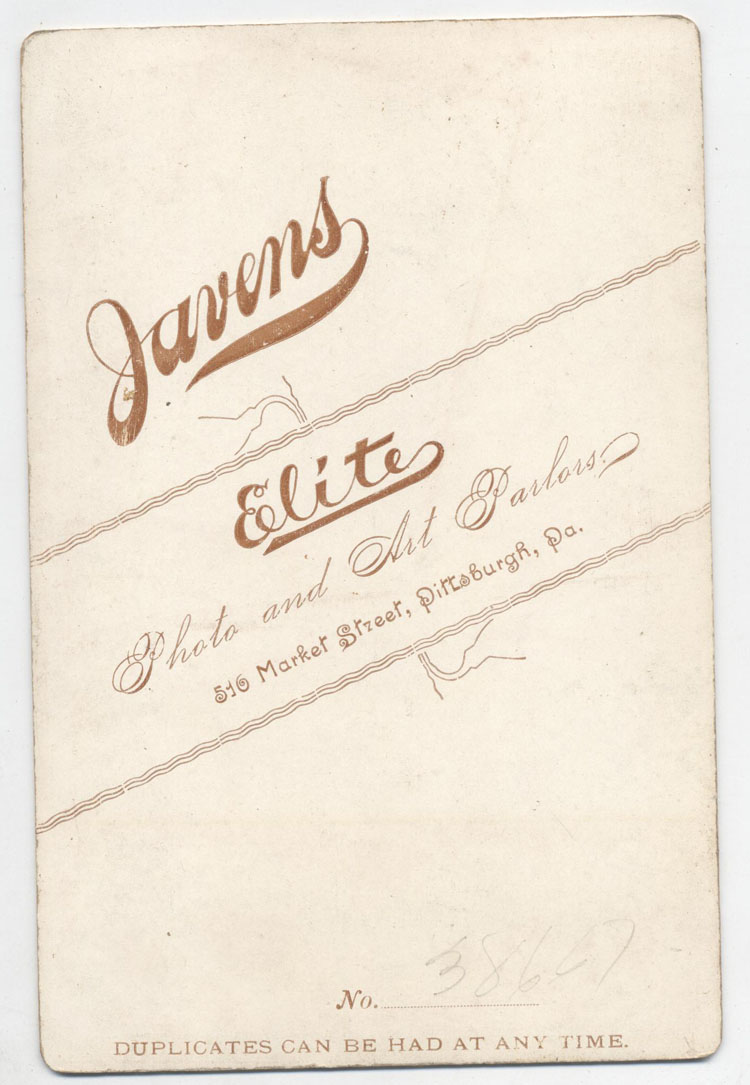 Javens
Elite
Photo and Art Parlors.
516 Market Street, Pittsburgh, Pa.
No. 38667
DUPLICATES CAN BE HAD AT ANY TIME.